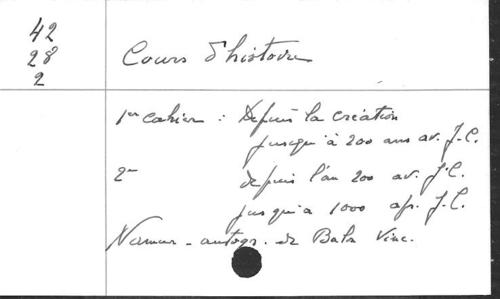 42
28
2
Cours d'histoire
1er cahier : Depuis la création
jusqu'à 200 ans av. J.C.
2me depuis l'an 200 av. J.C.
jusqu'à 1000 ap. J.C.
Namur - autogr. de Vinc.